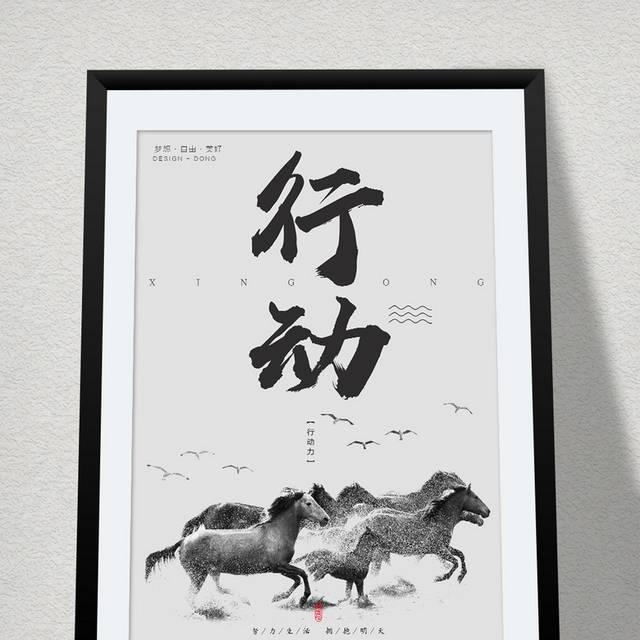 梦想·自由·美好
DESIGN - DONG
行
XING ONG
动
【行动力】
努/力/生/活 拥/抱/明/天